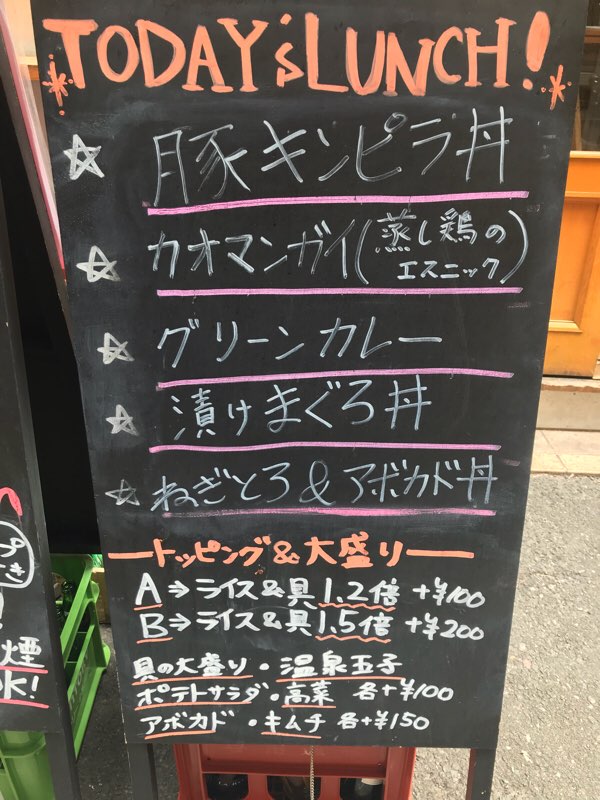 TODAY'S LUNCH!
☆ 豚キンピラ丼
☆ カオマンガイ(蒸し鶏の
エスニック)
☆ グリーンカレー
☆ 漬けまぐろ丼
☆ ねぎとろ&アボカド丼
ートッピング&大盛りー
A⇒ライス&具1.2倍 +¥100
B⇒ライス&具1.5倍 +¥200
具の大盛り・温泉玉子
ポテトサラダ・高菜 各+¥100
アボカド・キムチ 各+¥150
煙
OK!